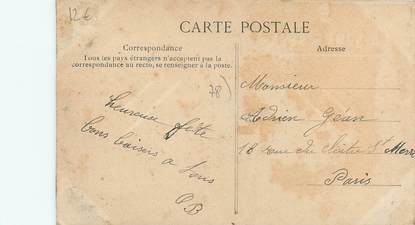 12€
CARTE POSTALE
Correspondance
Tous les pays étrangers n'acceptent pas la
correspondance au recto, se renseigner à la poste.
Adresse
78)
heureuse fête
bons baisers a tous
CB
Monsieur
Adrien Géan
18 rue du Cloitre St Merri
Paris